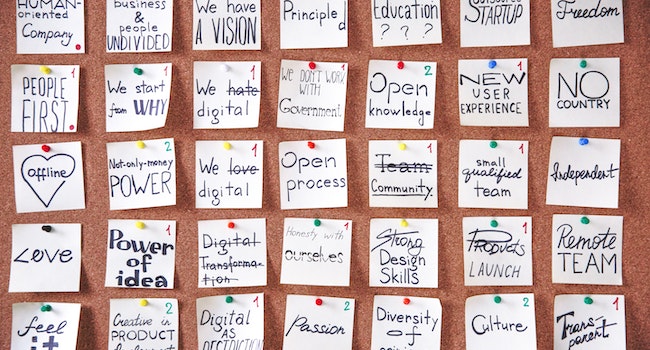 HUMAN-
oriented
Company.
business &
people
UNDIVIDED
We have
A VISION
Principled
Education
? ? ?
STARTUP
Freedom
PEOPLE
FIRST.
We start
from WHY
1
We hate
digital
1
We DON'T WORK
WITH
Government
2
Open
knowledge
1
NEW
USER
EXPERIENCE
NO
COUNTRY
offline
2
Not-only-money
POWER
1
We love
digital
1
Open
process
1
Team
Community
1
small
qualified
team
Independent
Love
1
Power
of
idea
1
Digital
Transforma-
tion
1
Honesty with
ourselves
Strong
Design
Skills
1
Products
LAUNCH
Remote
TEAM
1
feel
it
2
Creative in
PRODUCT
1
Digital
AS
2
Passion
1
Diversity
of
2
Culture
1
Trans-
parent